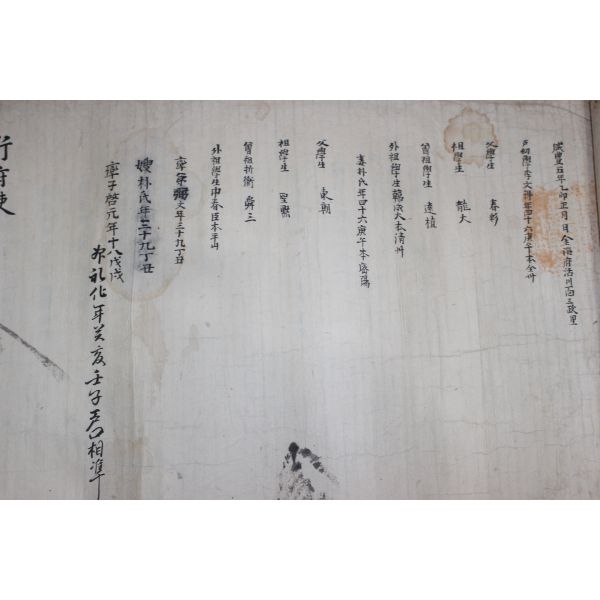 咸豊五年乙卯正月 日金海府活川面三政里
戶幼學李文得年四十六庚午本全州
父學生 春彩
祖學生 龍大
曾祖學生 達植
外祖學生韓 大本淸州
妻朴氏年四十六庚午本密陽
父學生 東朝
祖學生 聖熙
曾祖折衝 舜三
外祖學生申春臣本平山
率 文年三十九丁丑
嫂朴氏年三十九丁丑
率子啓元年十八戊戌
年癸亥壬子 口相準
行府使